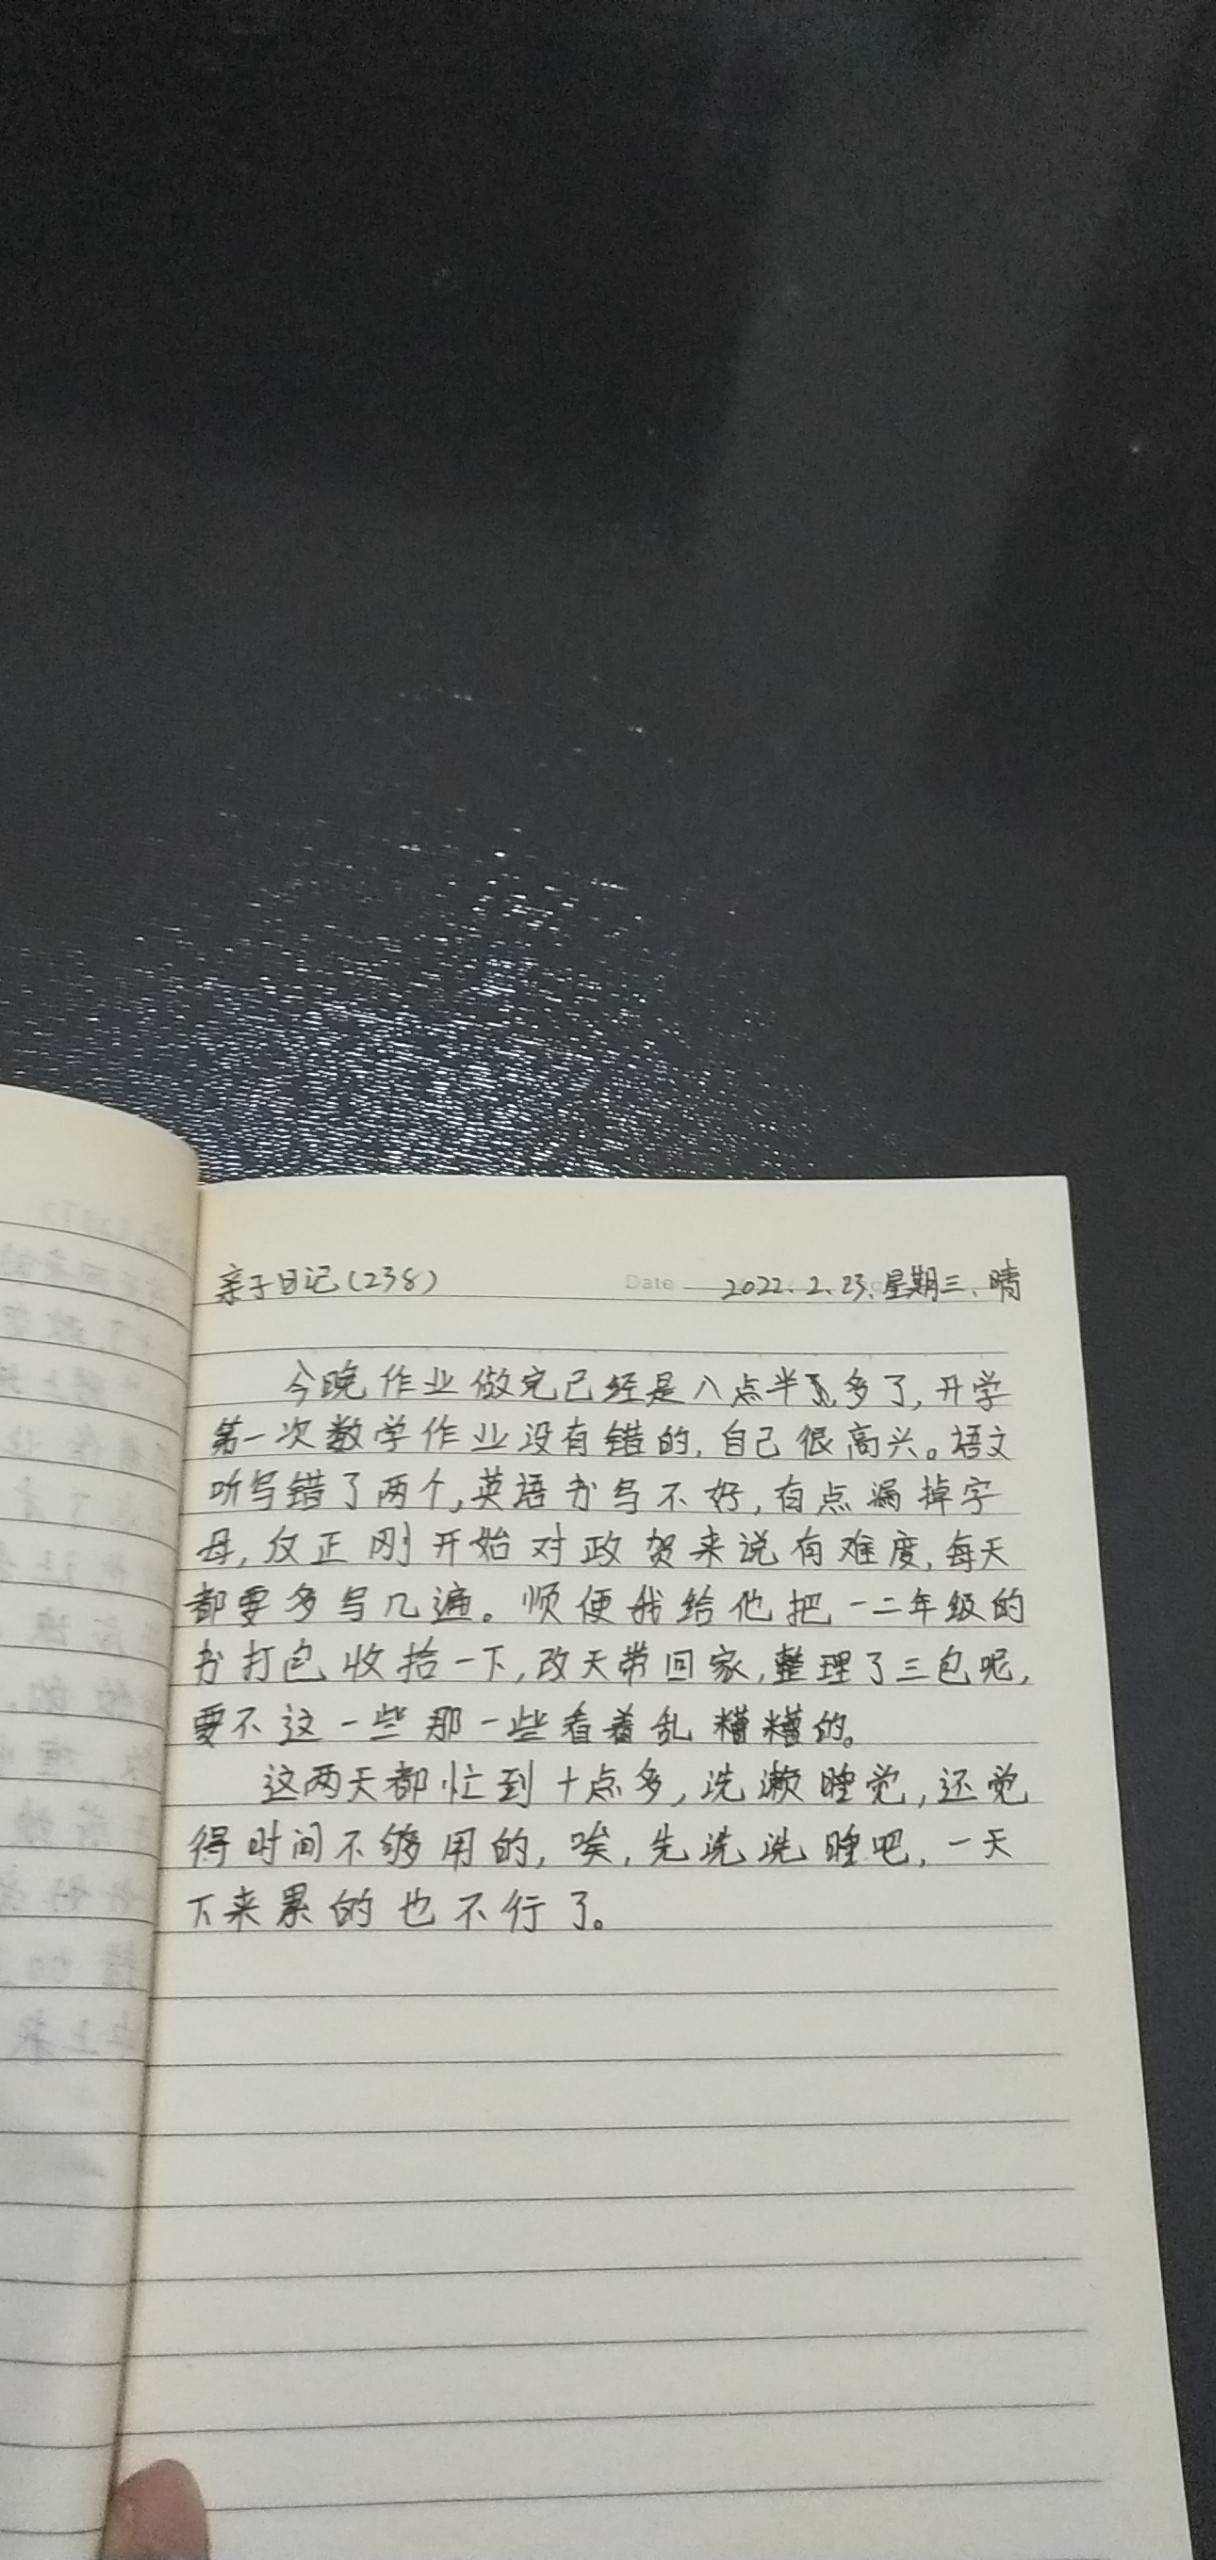 亲子日记(238) Date 2022.2.23.星期三.晴
今晚作业做完已经是八点半多了,开学
第一次数学作业没有错的,自己很高兴。语文
听写错了两个,英语书写不好,有点漏掉字
母,反正刚开始对政贺来说有难度,每天
都要多写几遍。顺便我给他把一二年级的
书打包收拾一下,改天带回家,整理了三包呢,
要不这一些那一些看着乱糟糟的。
这两天都忙到十点多,洗漱睡觉,还觉
得时间不够用的,唉,先洗洗睡吧,一天
下来累的也不行了。